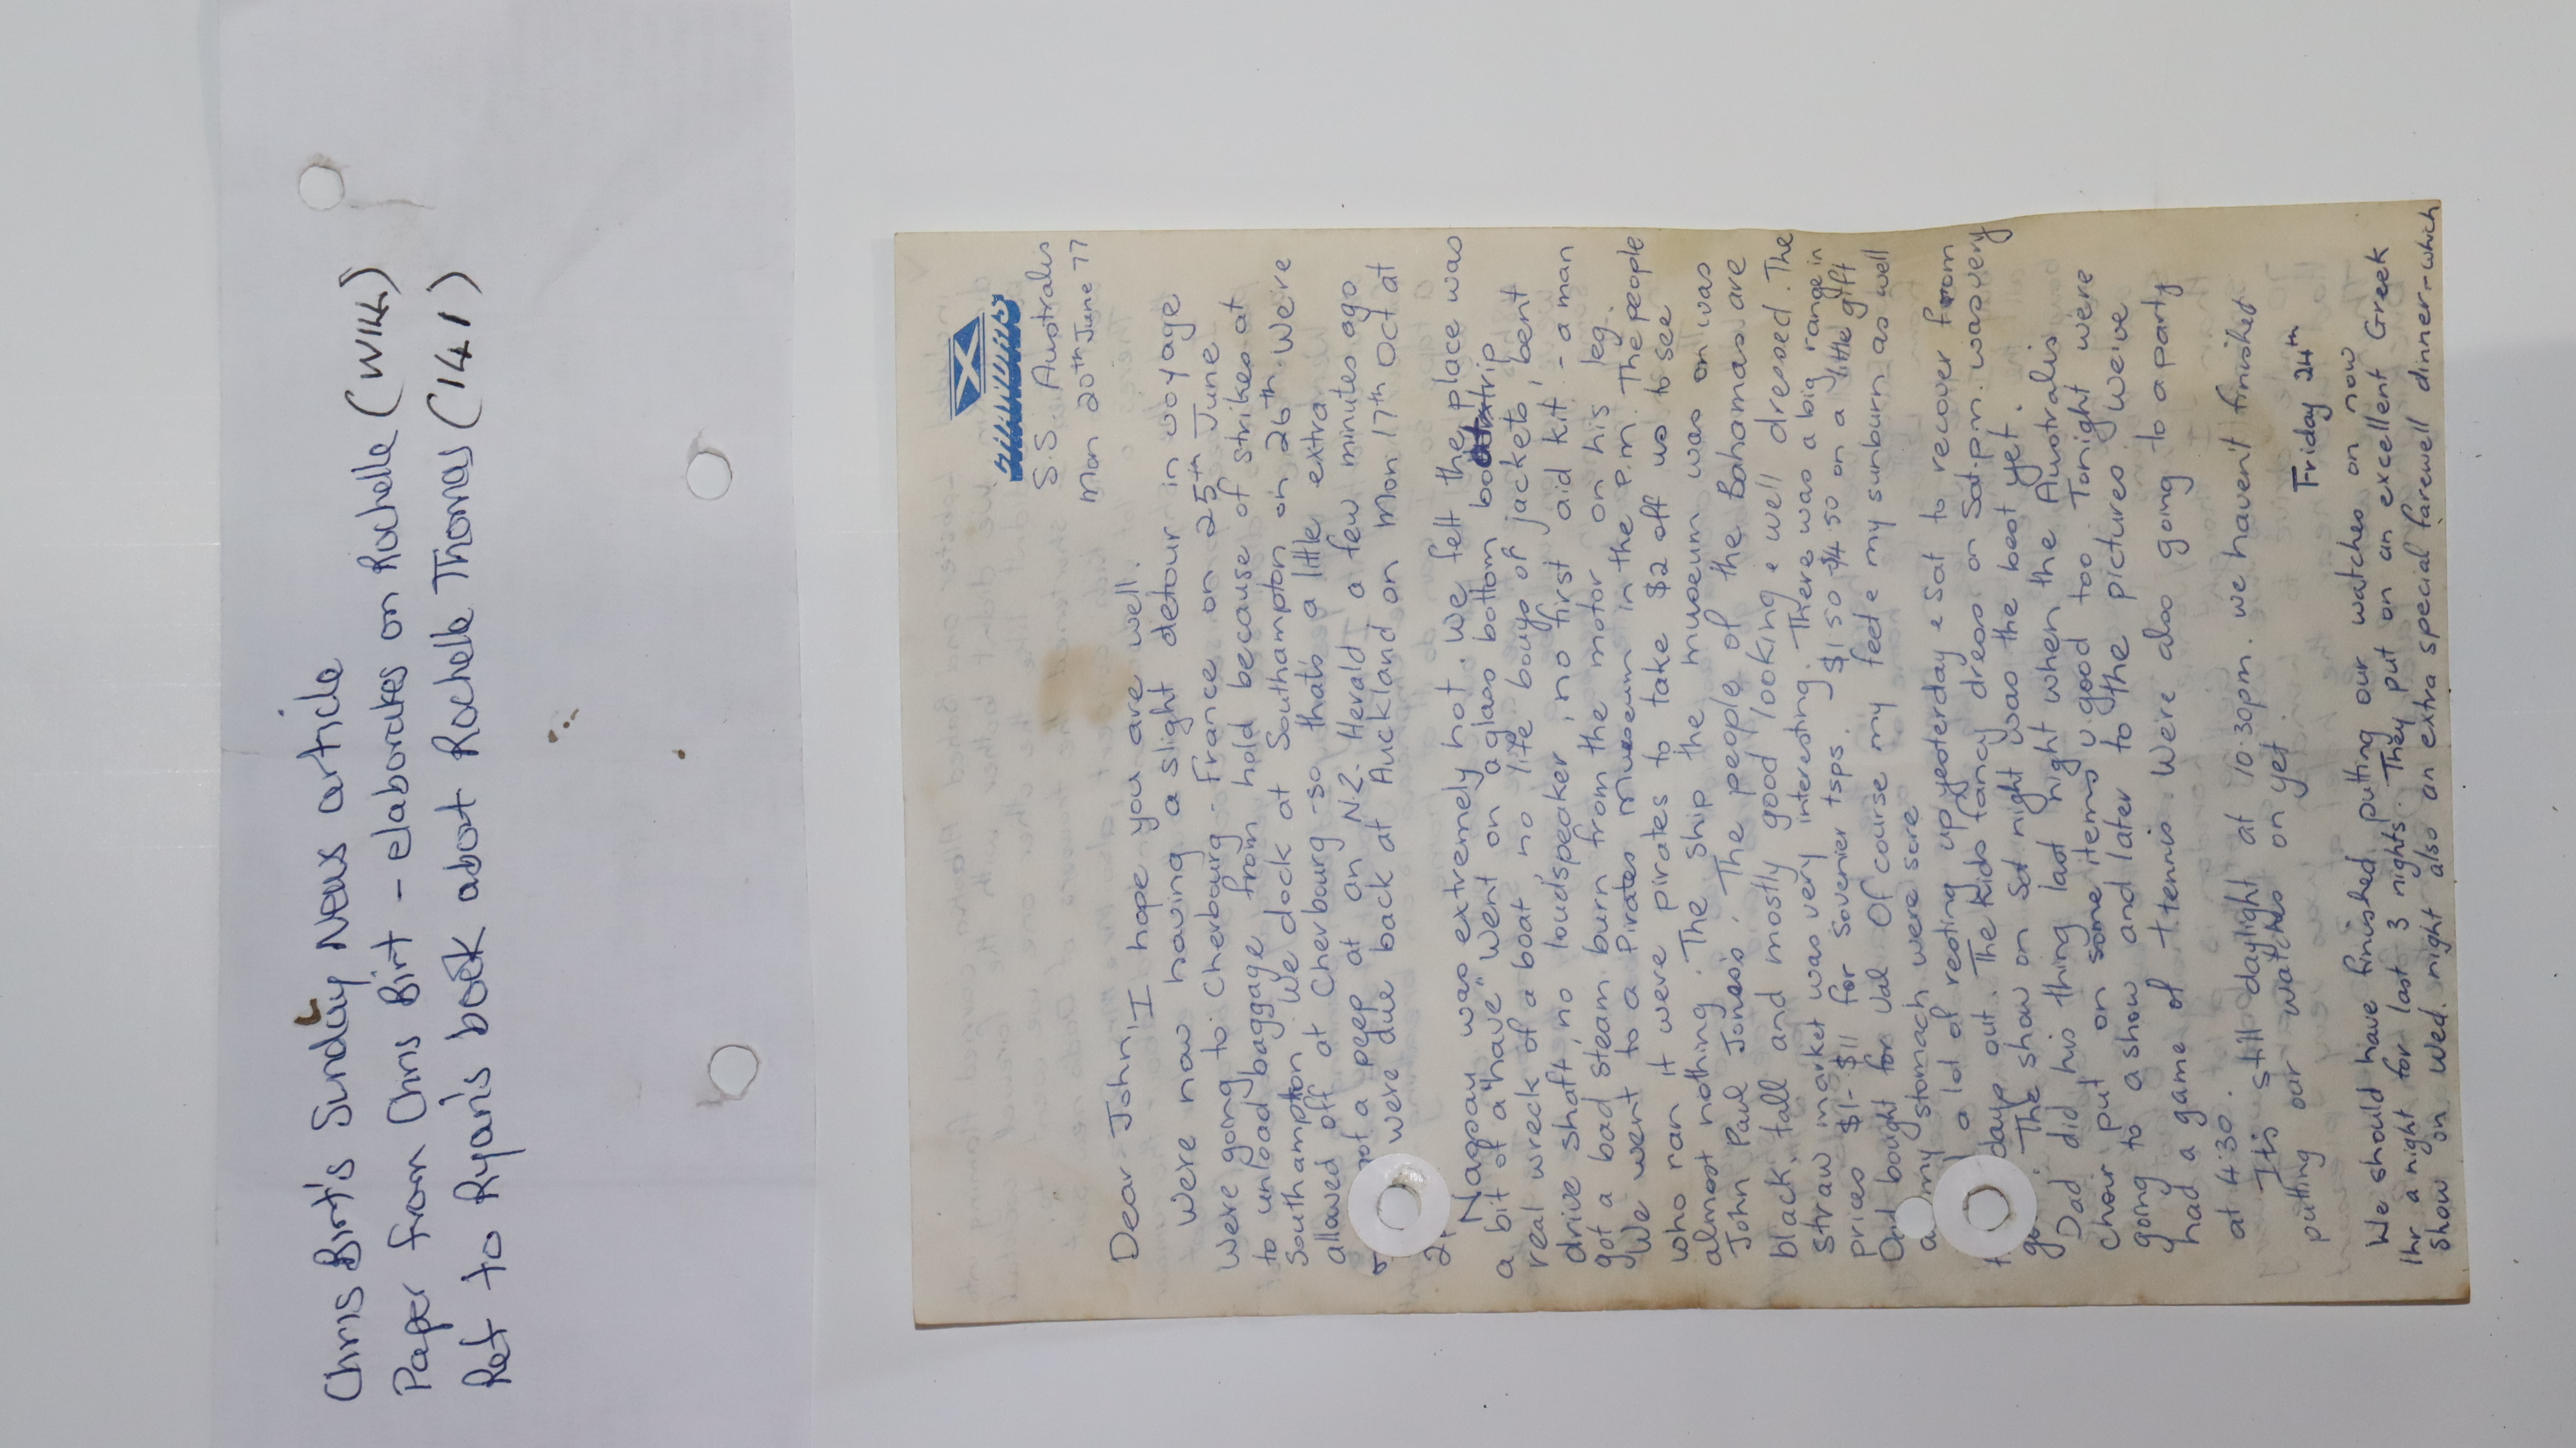 Chris Birt's Sunday News article
Paper from Chris Birt - elaborates on Rochelle (W14)
Ref to Ryan's book about Rochelle Thomas (141)
S.S. Australis
Mon 20th June 77
Dear John,
I hope you are well.
We're now having a slight detour in voyage
We're going to Cherbourg - France on 25th June
to unload baggage from hold because of strikes at
Southampton. We dock at Southampton on 26th. We're
allowed off at Cherbourg - so thats a little extra.
got a peep at an N.Z. Herald a few minutes ago
were due back at Auckland on Mon 17th Oct at
Nassau was extremely hot. We felt the place was
a bit of a "have" went on a glass bottom trip
real wreck of a boat, no life bouys or jackets, bent
drive shaft, no loudspeaker, no first aid kit - a man
got a bad steam burn from the motor on his leg.
We went to a Pirates museum in the p.m. The people
who ran it were pirates to take $2 off us to see
almost nothing. The ship the museum was on was
John Paul Jones's. The people of the Bahamas are
black, tall and mostly good looking & well dressed. The
straw market was very interesting. There was a big range in
prices $1 - $11 for souvenier tsps. $1.50 - $4.50 on a little gift
Dad bought for Val. Of course my feet & my sunburn as well
a my stomach were sore
a lot of resting up yesterday & Sat to recover from
days out. The kids fancy dress on Sat. p.m. was very
go. The show on Sat night was the best yet.
Dad did his thing last night when the Australis
choir put on some items v. good too. Tonight were
going to a show and later to the pictures. We've
had a game of t tennis. We're also going to a party
at 4.30.
Its still daylight at 10.30pm. we haven't finished
putting our watches on yet.
Friday 24th
We should have finished putting our watches on now
1hr a night for last 3 nights. They put on an excellent Greek
show on Wed. night also an extra special farewell dinner - which